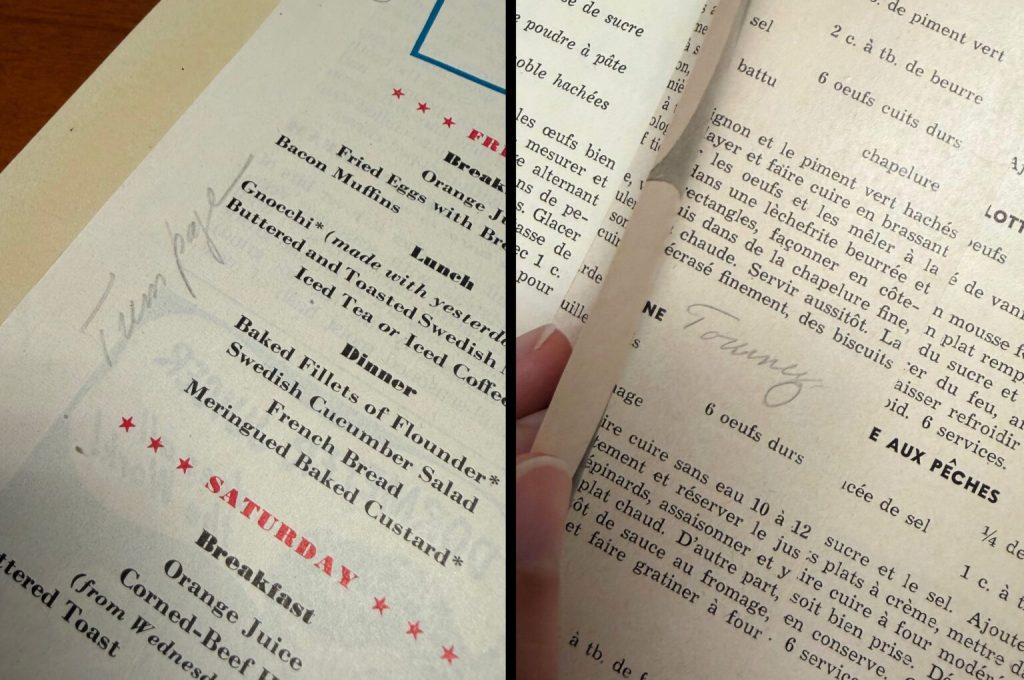 ★ ★ ★ FRI
Breakf
Orange Ju
Fried Eggs with Bro
Bacon Muffins
Lunch
Gnocchi* (made with yesterda
Buttered and Toasted Swedish
Iced Tea or Iced Coffee
Dinner
Baked Fillets of Flounder*
Swedish Cucumber Salad
French Bread
Meringued Baked Custard*
★ ★ ★ SATURDAY ★ ★ ★
Breakfast
Orange Juice
Corned-Beef H
(from Wednesd
ttered Toast
Turn page
se de sucre
poudre à pâte
oble hachées
les œufs bien
mesurer et
alternant
ns de pe-
s. Glacer
asse de
ec 1 c.
pour
. de piment vert
sel
2 c. à tb. de beurre
battu
6 oeufs cuits durs
chapelure
ignon et le piment vert hachés
layer et faire cuire en brassant
les oeufs et les mêler à la
dans une lèchefrite beurrée et
rectangles, façonner en côte-
uis dans de la chapelure fine,
chaude. Servir aussitôt. La
écrasé finement, des biscuits
NE
Tommy
nage
6 oeufs durs
ire cuire sans eau 10 à 12
tement et réserver le jus
épinards, assaisonner et y
plat chaud. D'autre part,
ôt de sauce au fromage,
et faire gratiner à four
à tb. de f
LOTT
oeufs
é de vani
n mousse f
n plat remp
du sucre et
er du feu, a
aisser refroidir
oid. 6 services.
E AUX PÊCHES
cée de sel
¼ de
1 c. à t
sucre et le sel. Ajoute
s plats à crème, mettre d
ire cuire à four modéré
soit bien prise. Dé
en conserve, ve
6 service